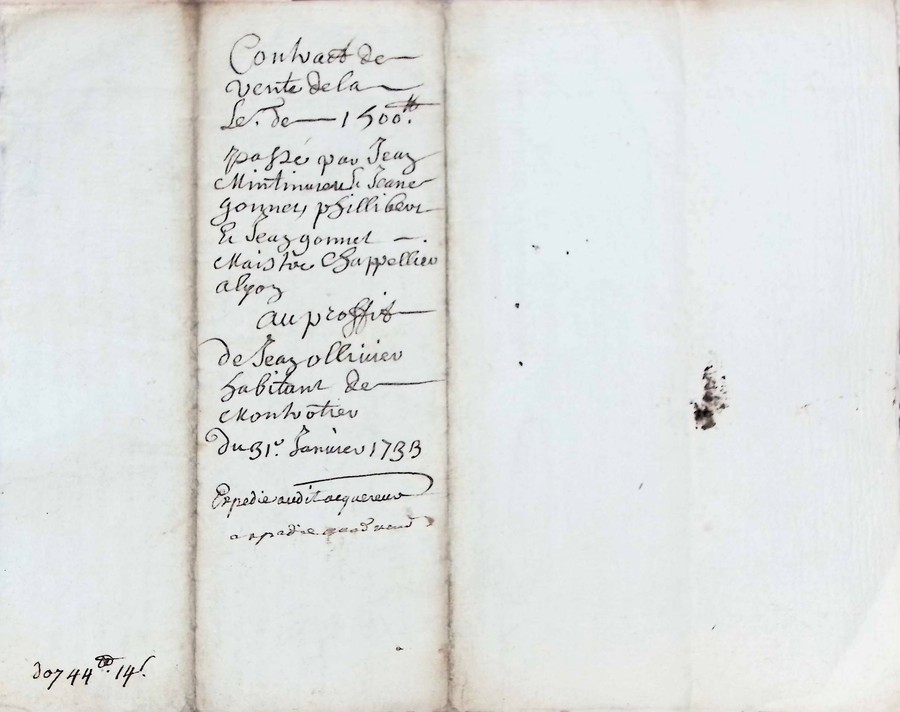 Contract de
vente de la
Le. de 1500.ᵗᵗ
passé par Jean
gonnet, phillibert
Et Jean gonnet
Maistre Chappellier
a lyon
au proffit
de Jean ollivier
habitant de
Montrotier
du 31.e Janvier 1733
Expedie audit acquereur
744ᵗᵗ. 14ˢ.